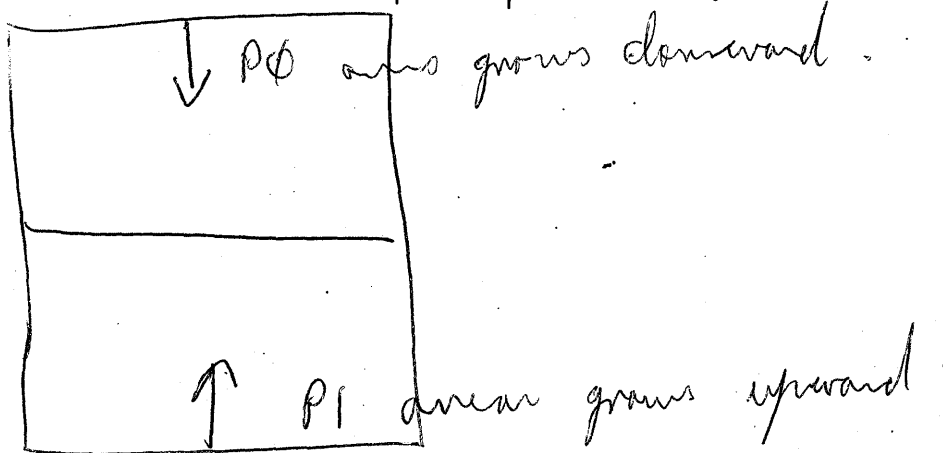 PØ area grows downward.
P1 area grows upward